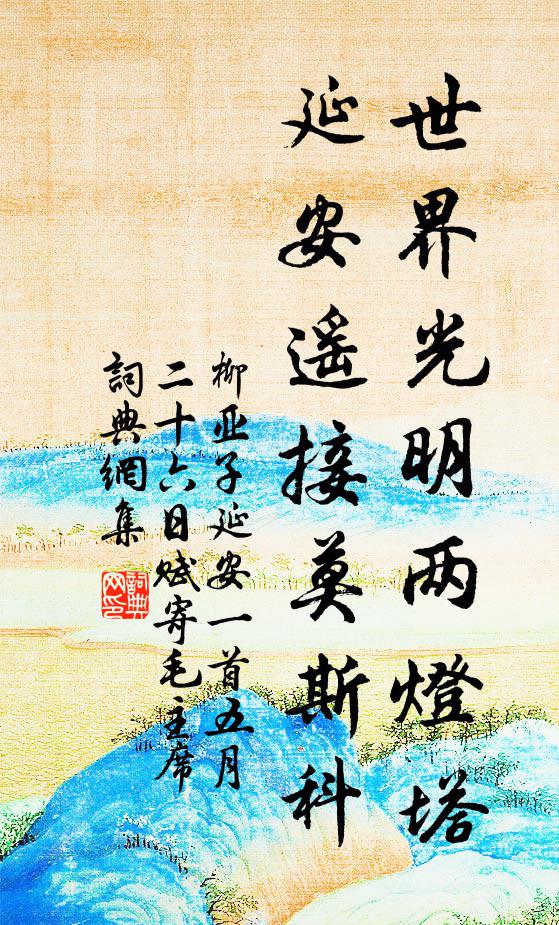 世界光明两燈塔
延安遥接莫斯科
柳亚子延安一首五月
二十六日赋寄毛主席
詞典網集
詞典网印